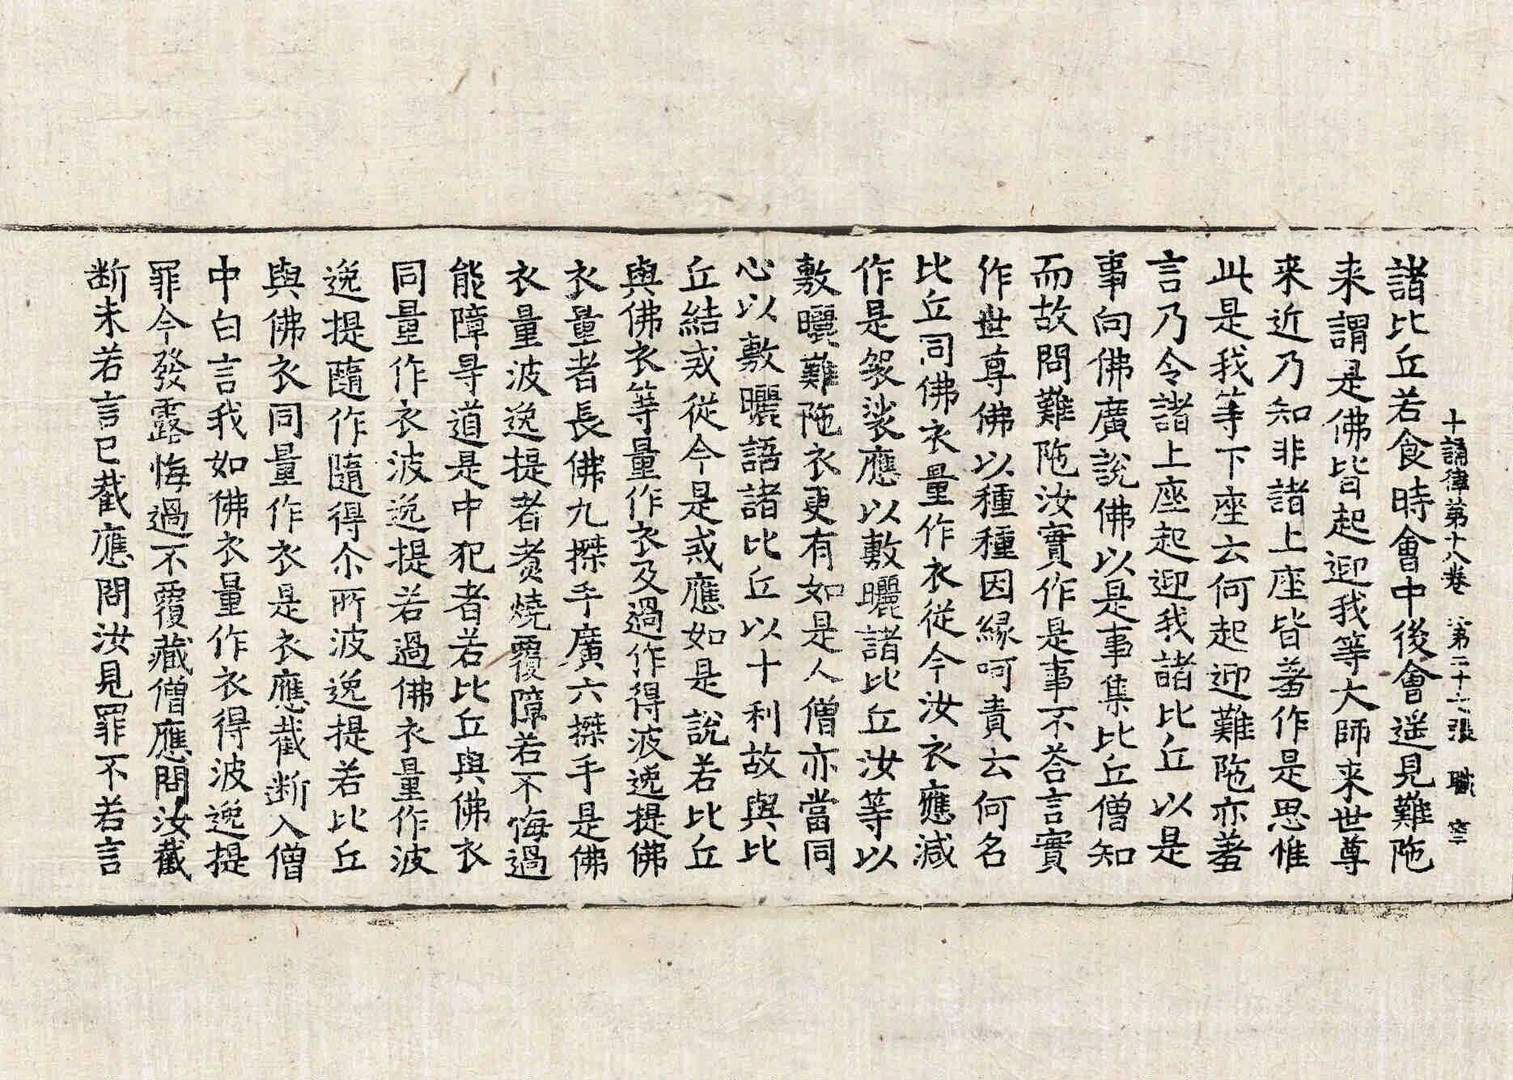 十誦律第十八卷 第二十七張 職
諸比丘若食時會中後會遥見難陁
来謂是佛皆起迎我等大師来世尊
来近乃知非諸上座皆羞作是思惟
此是我等下座云何起迎難陁亦羞
言乃令諸上座起迎我諸比丘以是
事向佛廣說佛以是事集比丘僧知
而故問難陁汝實作是事不荅言實
作世尊佛以種種因縁呵責云何名
比丘同佛衣量作衣從今汝衣應減
作是袈裟應以敷曬諸比丘汝等以
敷曬難陁衣更有如是人僧亦當同
心以敷曬語諸比丘以十利故與比
丘結戒從今是戒應如是說若比丘
與佛衣等量作衣及過作得波逸提佛
衣量者長佛九搩手廣六搩手是佛
衣量波逸提者煑燒覆障若不悔過
能障㝵道是中犯者若比丘與佛衣
同量作衣波逸提若過佛衣量作波
逸提隨作隨得尒所波逸提若比丘
與佛衣同量作衣是衣應截断入僧
中白言我如佛衣量作衣得波逸提
罪今發露悔過不覆藏僧應問汝截
断未若言已截應問汝見罪不若言